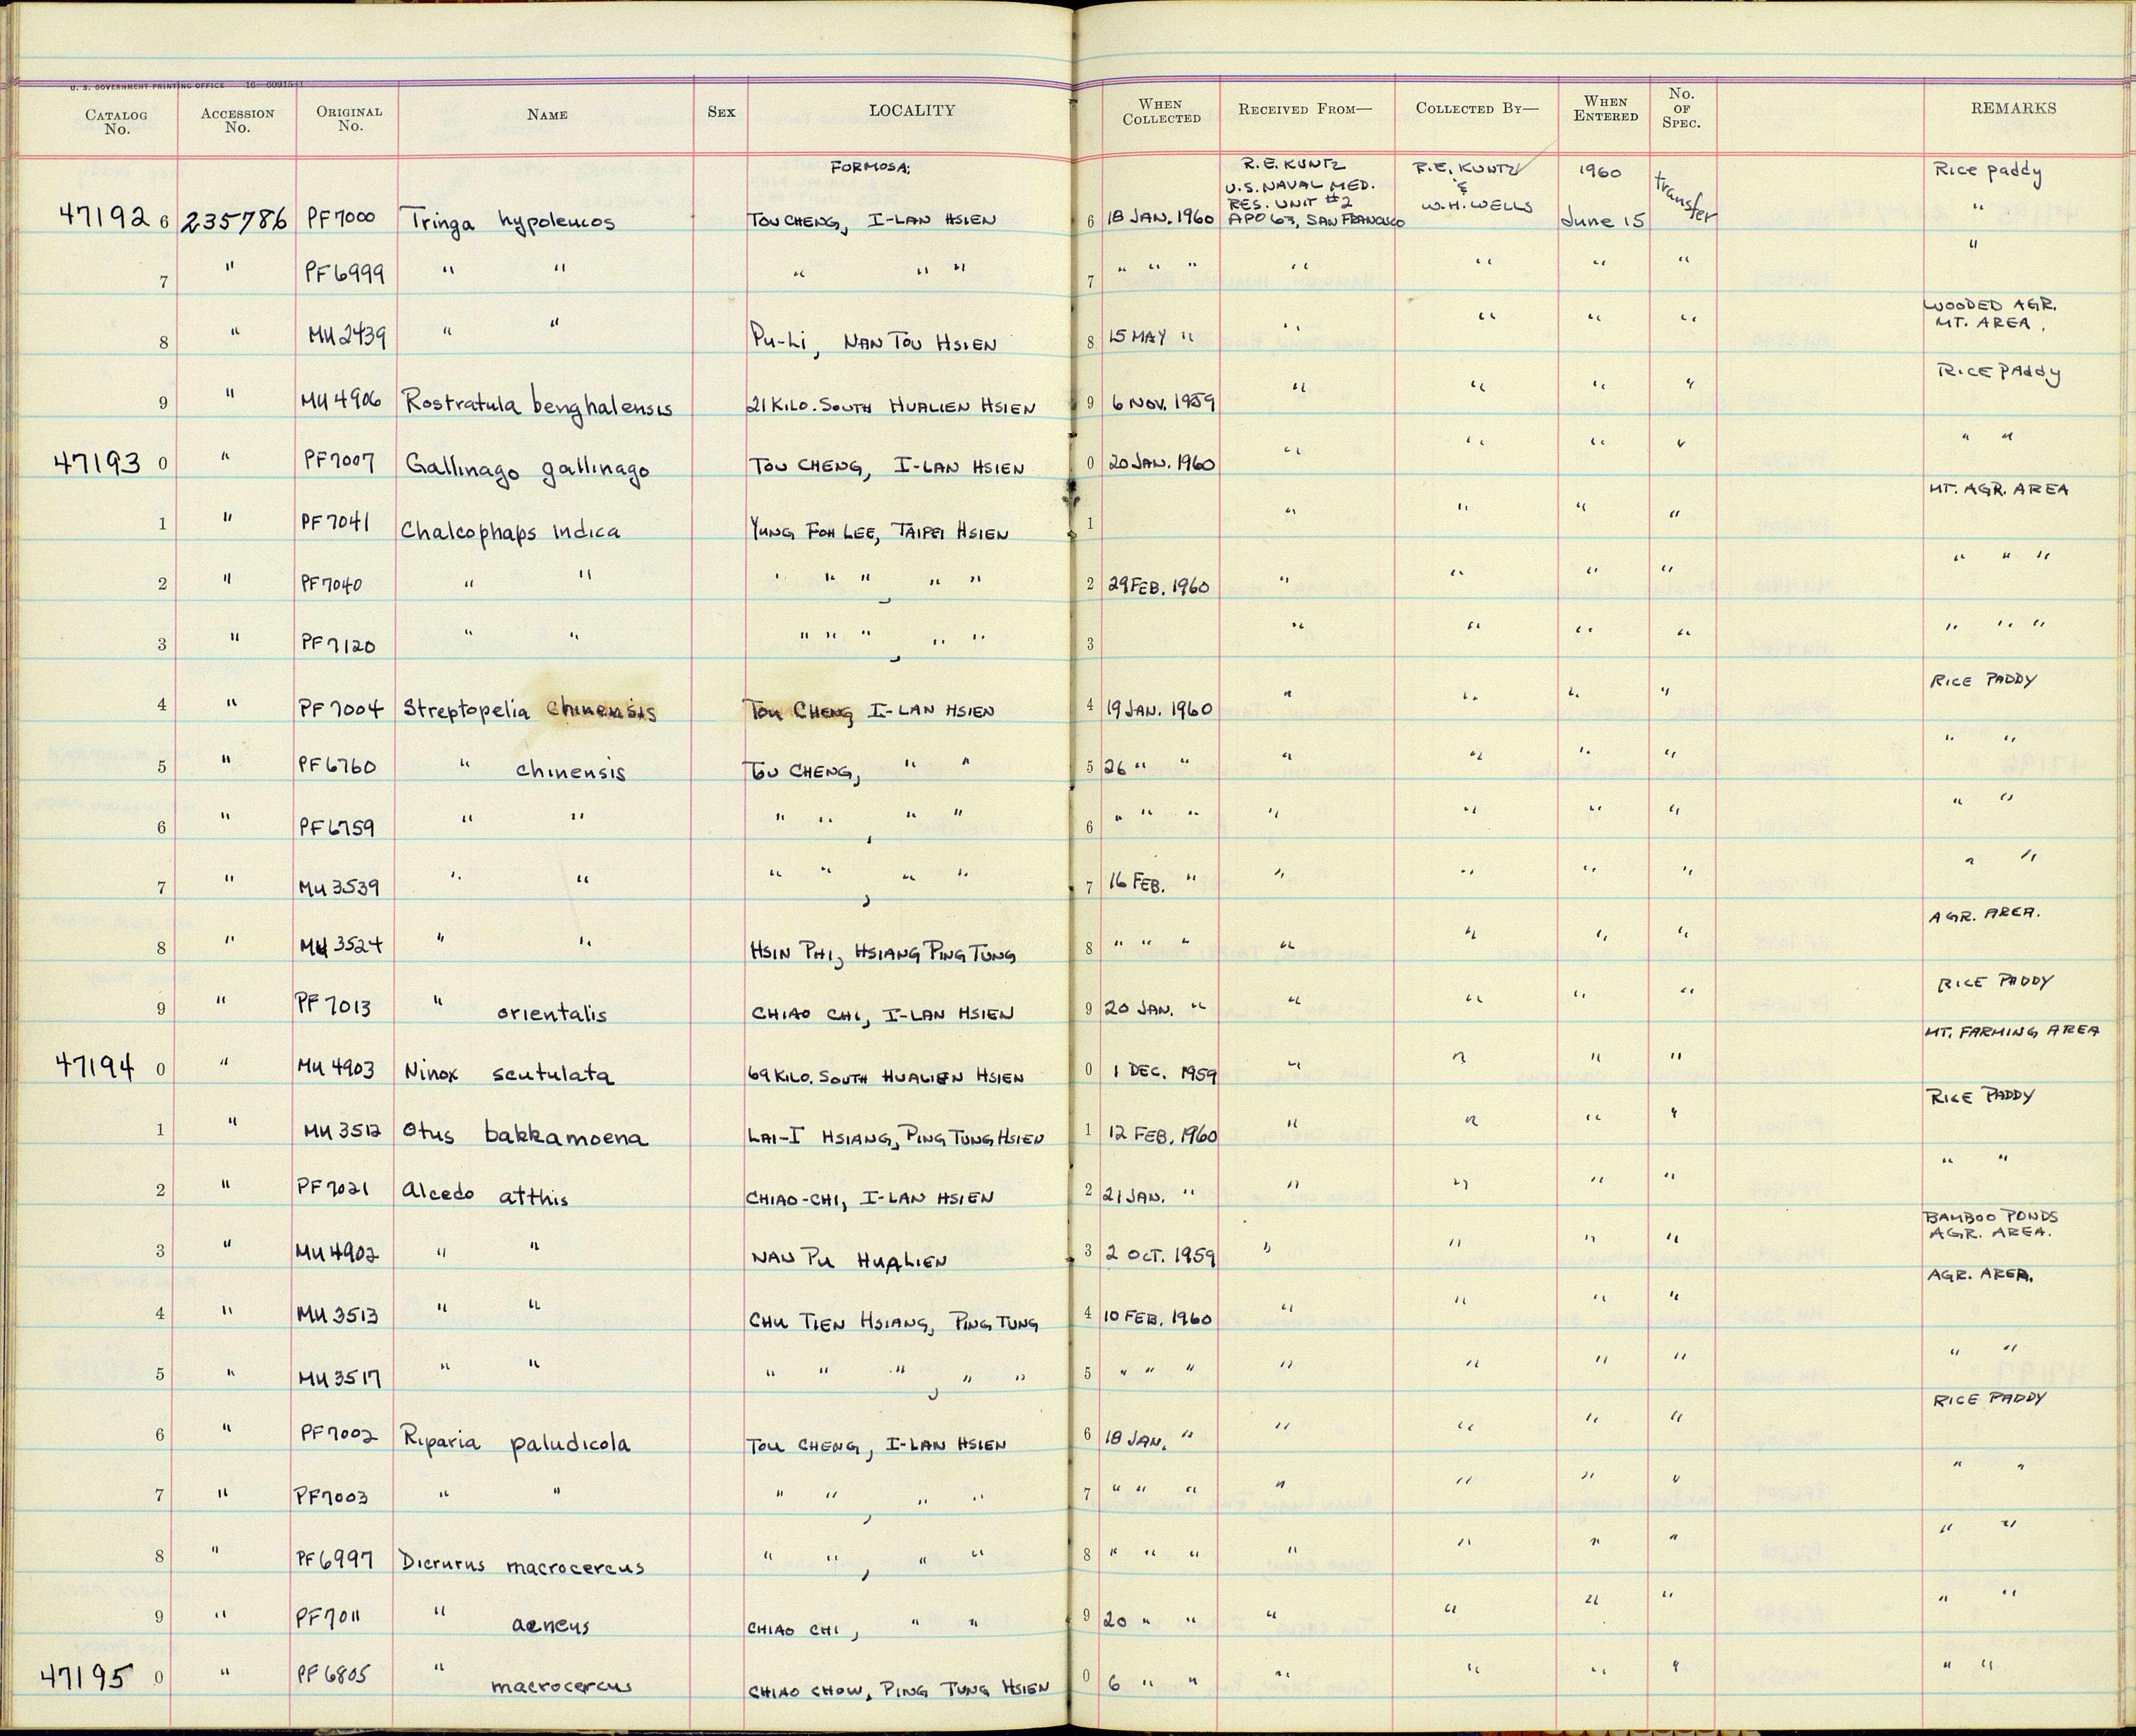 U. S. GOVERNMENT PRINTING OFFICE
CATALOG No. ACCESSION No. ORIGINAL No. NAME SEX LOCALITY WHEN COLLECTED RECEIVED FROM— COLLECTED BY— WHEN ENTERED No. OF SPEC. REMARKS
FORMOSA: R.E. KUNTZ U.S. NAVAL MED. RES. UNIT #2 APO 63, SAN FRANCISCO R.E. KUNTZ & W.H. WELLS 1960 transfer Rice paddy
47192 6 235786 PF7000 Tringa hypoleucos TOU CHENG, I-LAN HSIEN 6 18 JAN. 1960 June 15 "
7 " PF6999 " " " " " 7 " " " " " " " "
8 " MU2439 " " PU-LI, NAN TOU HSIEN 8 15 MAY " " " " " WOODED AGR. MT. AREA.
9 " MU4906 Rostratula benghalensis 21 KILO. SOUTH HUALIEN HSIEN 9 6 NOV. 1959 " " " " RICE PADDY
47193 0 " PF7007 Gallinago gallinago TOU CHENG, I-LAN HSIEN 0 20 JAN. 1960 " " " " " "
1 " PF7041 Chalcophaps indica YUNG FOH LEE, TAIPEI HSIEN 1 " " " " MT. AGR. AREA
2 " PF7040 " " " " ", " " 2 29 FEB. 1960 " " " " " " "
3 " PF7120 " " " " ", " " 3 " " " " " " "
4 " PF7004 Streptopelia chinensis TOU CHENG I-LAN HSIEN 4 19 JAN. 1960 " " " " RICE PADDY
5 " PF6760 " chinensis TOU CHENG, " " 5 26 " " " " " " " "
6 " PF6759 " " " ", " " 6 " " " " " " " " "
7 " MU3539 " " " ", " " 7 16 FEB. " " " " " " "
8 " MU3524 " " HSIN PHI, HSIANG PING TUNG 8 " " " " " " " AGR. AREA.
9 " PF7013 " orientalis CHIAO CHI, I-LAN HSIEN 9 20 JAN. " " " " " RICE PADDY
47194 0 " MU4903 Ninox scutulata 69 KILO. SOUTH HUALIEN HSIEN 0 1 DEC. 1959 " " " " MT. FARMING AREA
1 " MU3512 Otus bakkamoena LAI-I HSIANG, PING TUNG HSIEN 1 12 FEB. 1960 " " " " RICE PADDY
2 " PF7021 Alcedo atthis CHIAO-CHI, I-LAN HSIEN 2 21 JAN. " " " " " " "
3 " MU4902 " " NAN PU HUALIEN 3 2 OCT. 1959 " " " " BAMBOO PONDS AGR. AREA.
4 " MU3513 " " CHU TIEN HSIANG, PING TUNG 4 10 FEB. 1960 " " " " AGR. AREA.
5 " MU3517 " " " " ", " " 5 " " " " " " " " "
6 " PF7002 Riparia paludicola TOU CHENG, I-LAN HSIEN 6 18 JAN. " " " " " RICE PADDY
7 " PF7003 " " " ", " " 7 " " " " " " " " "
8 " PF6997 Dicrurus macrocercus " ", " " 8 " " " " " " " " "
9 " PF7011 " aeneus CHIAO CHI, " " 9 20 " " " " " " " "
47195 0 " PF6805 " macrocercus CHIAO CHOW, PING TUNG HSIEN 0 6 " " " " " " " "